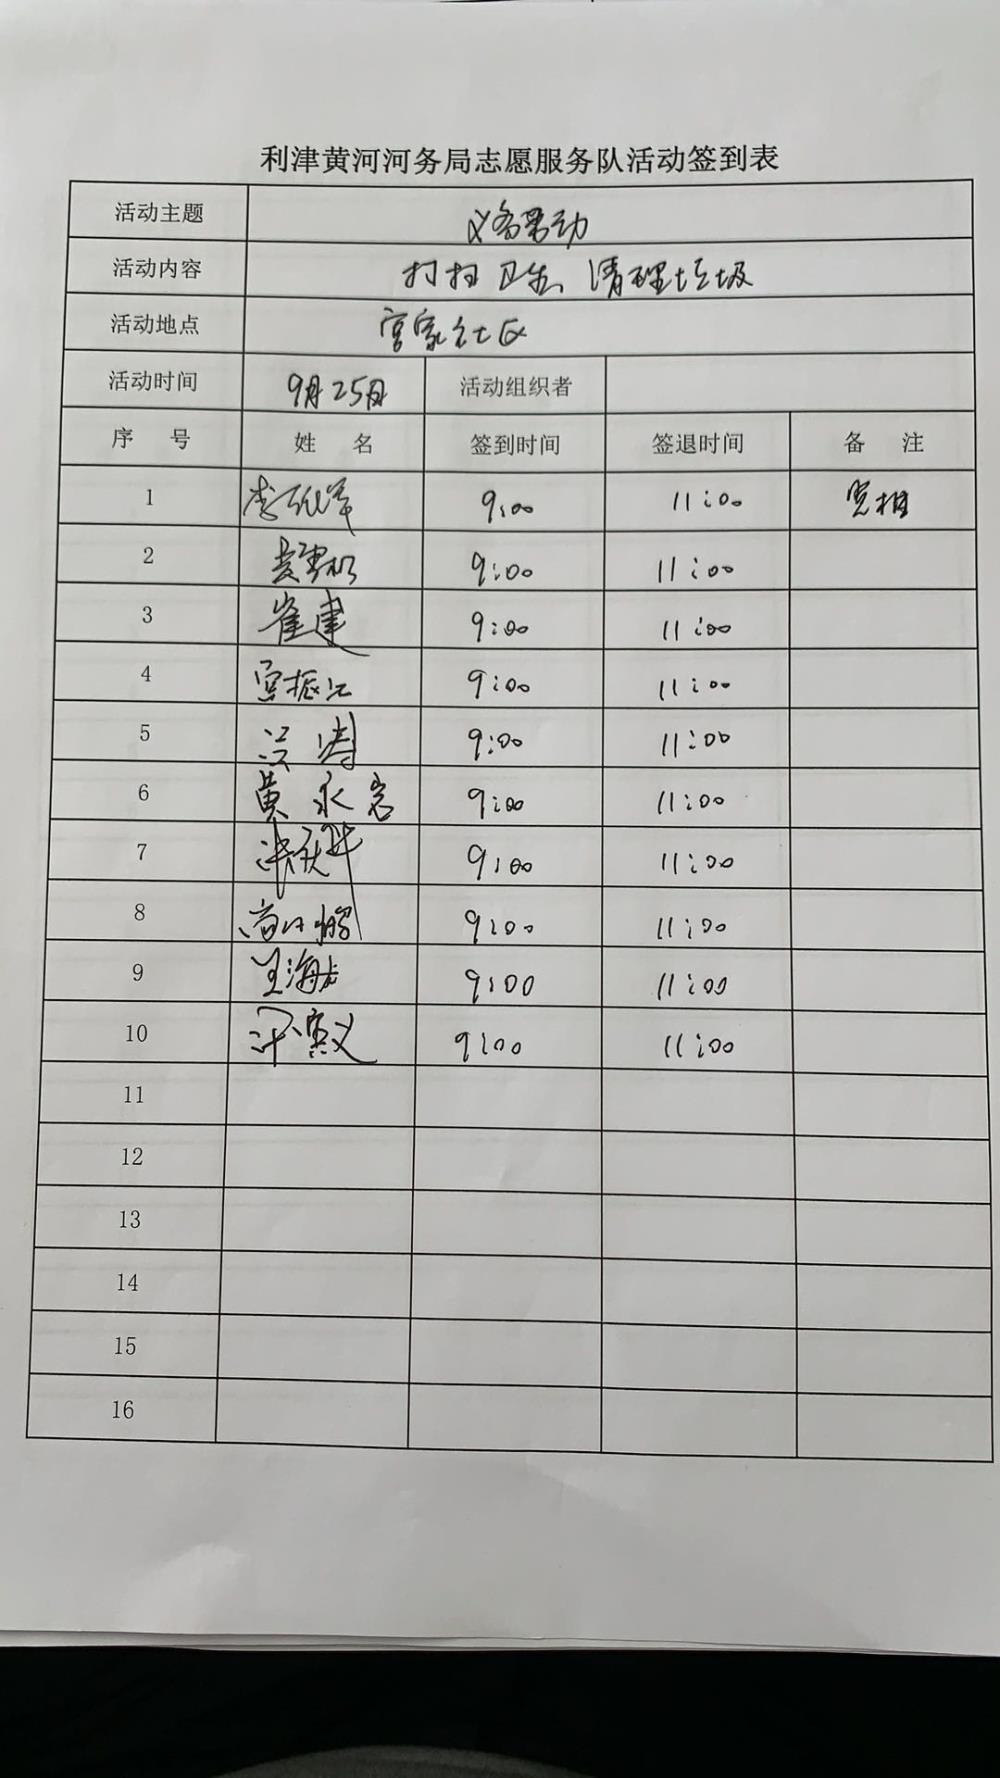 利津黄河河务局志愿服务队活动签到表
活动主题 义务劳动
活动内容 打扫卫生、清理垃圾
活动地点 宫家社区
活动时间 9月25日 活动组织者
序 号 姓 名 签到时间 签退时间 备 注
1 9:00 11:00
2 9:00 11:00
3 崔建 9:00 11:00
4 宫振江 9:00 11:00
5 9:00 11:00
6 黄永 9:00 11:00
7 9:00 11:00
8 9:00 11:00
9 王海龙 9:00 11:00
10 9:00 11:00
11
12
13
14
15
16